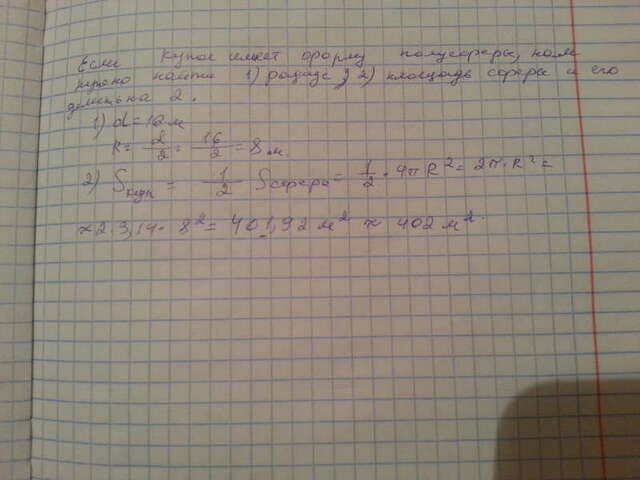 Если купол имеет форму полусферы, нам
нужно найти 1) радиус; 2) площадь сферы и его
делить на 2.
1) d = 16 м
R = d/2 = 16/2 = 8 м.
2) Sкуп = 1/2 Sсферы = 1/2 · 4πR² = 2π·R² =
≈ 2·3,14·8² = 401,92 м² ≈ 402 м².